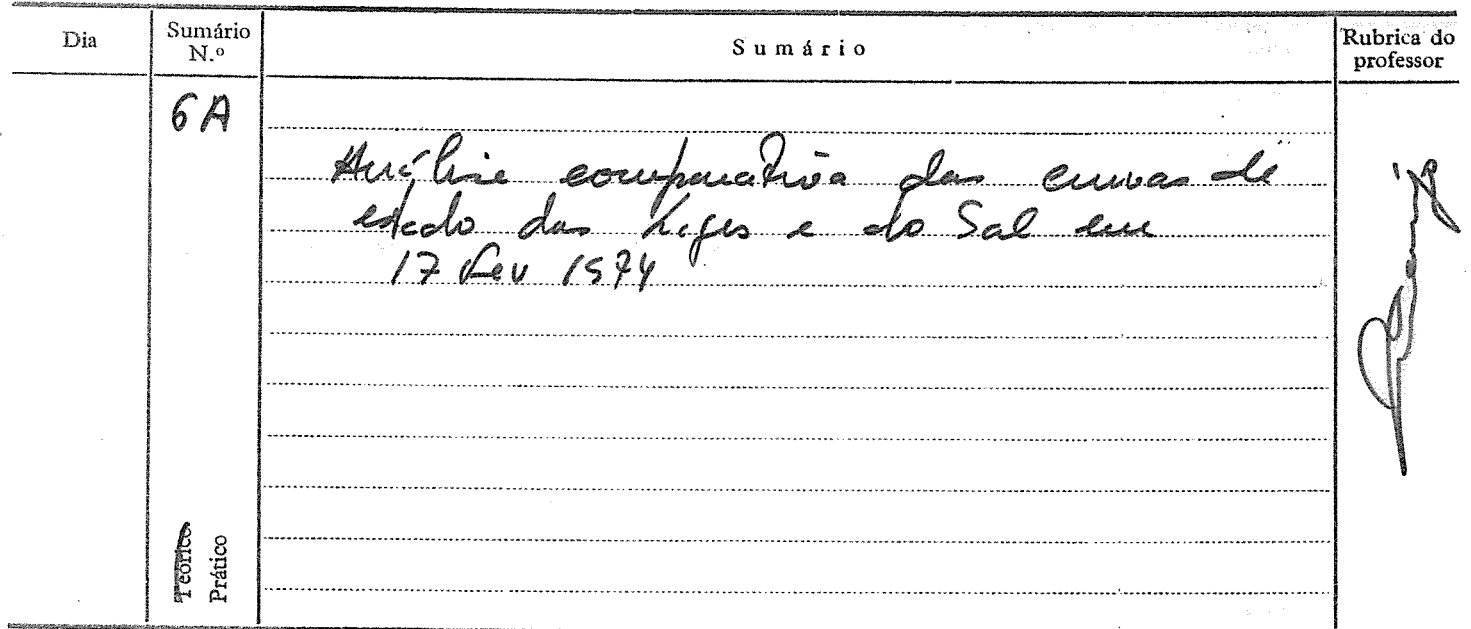 Dia
Sumário N.º
Sumário
Rubrica do professor
6A
Análise comparativa das curvas de
estado das Lajes e do Sal em
17 Fev 1974
Teórico
Prático